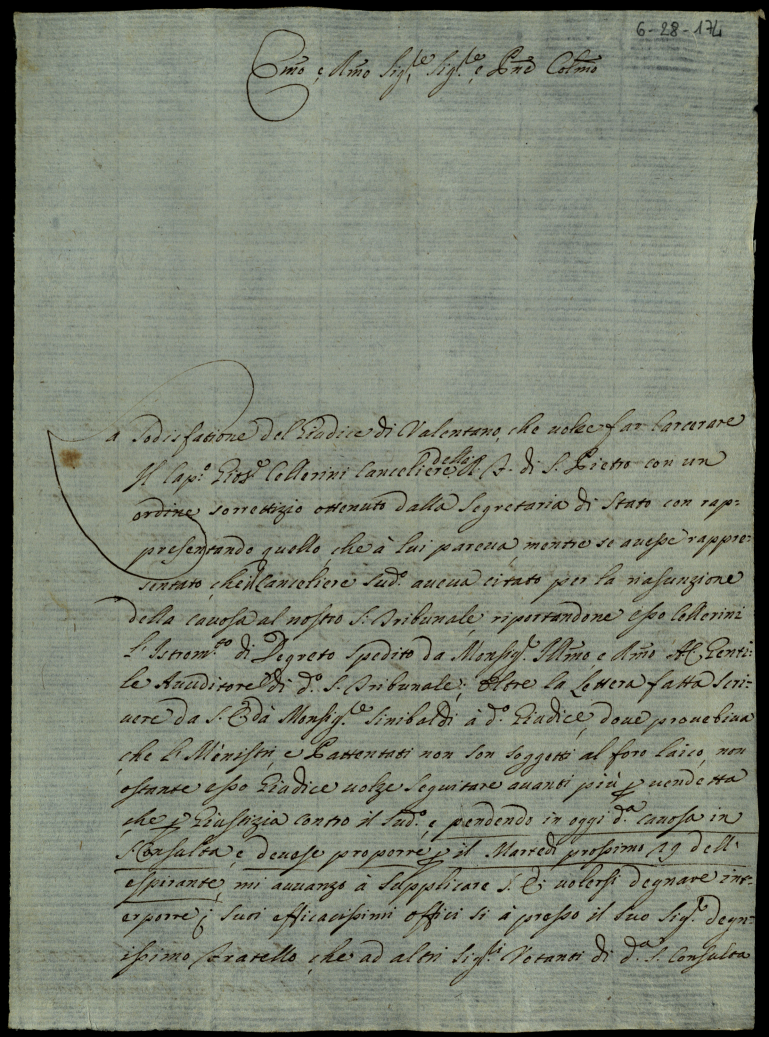 6-28-174
Emo, e Rmo Sig.re Sig.re, e Pne Colmo
A Sodisfatione del Giudice di Valentano, che volse far Carcerare
Il Cap.o Gios.e Cellerini Canceliere della R. F. di S. Pietro con un
ordine sorrettizio ottenuto dalla Segretaria di Stato con rap=
presentando quello, che à lui pareva, mentre se avesse rappre=
sentato, che il Canceliere sud.o aveva citato per la riasunzione
della cauosa al nostro S. Tribunale, riportandone esso Cellerini
L'Istrom.to di Degreto spedito da Monsig.r Illmo e Rmo Genti=
le Auuditore di d.o S. Tribunale; oltre la Lettera fatta Scri=
uere da S. E. dà Monsig.re Sinibaldi à d.o Giudice, doue proueniua
che li Menistri, e Pattentati non son soggetti al foro laico, non
ostante esso Giudice volse seguitare auanti più p vendetta
che p Giustizia contro il sud.o, e pendendo in oggi d.a cauosa in
S. Consulta, e deuose proporre p il Martedì prossimo 29 dell'
espirante, mi auuanzo à Supplicare S. E. volersi degnare int=
erporre i suoi efficacissimi offici si à presso il suo Sig.re degn=
issimo Fratello, che ad altri Sig.ri Votanti di d.a S. Consulta